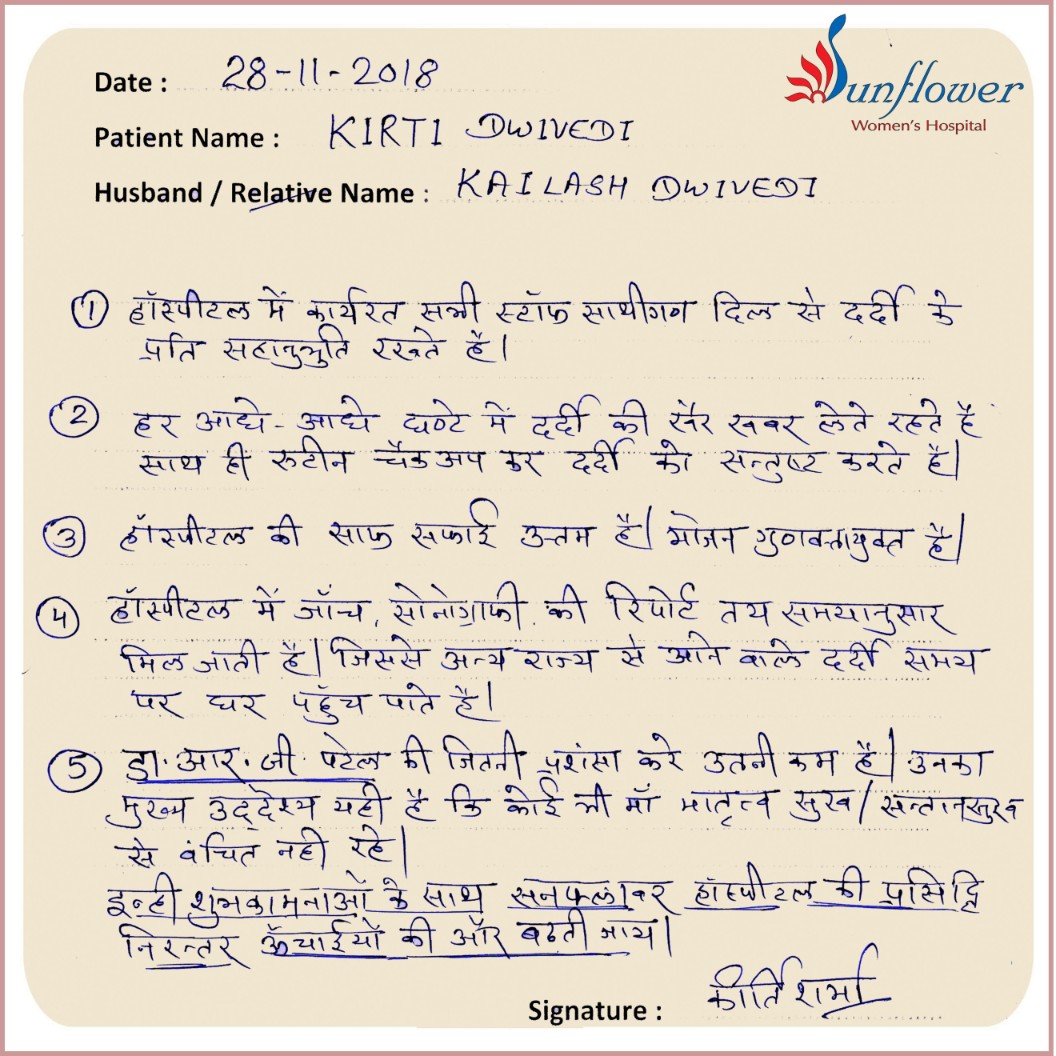 Sunflower
Women's Hospital
Date : 28-11-2018
Patient Name : KIRTI DWIVEDI
Husband / Relative Name : KAILASH DWIVEDI
① हॉस्पीटल में कार्यरत सभी स्टॉफ साथीगण दिल से दर्दी के
प्रति सहानुभुति रखते है।
② हर आधे-आधे घण्टे में दर्दी की खैर खबर लेते रहते है
साथ ही रुटीन चैकअप कर दर्दी को सन्तुष्ट करते है।
③ हॉस्पीटल की साफ सफाई उत्तम है। भोजन गुणवत्तायुक्त है।
④ हॉस्पीटल में जॉच, सोनोग्राफी की रिपोर्ट तय समयानुसार
मिल जाती है। जिससे अन्य राज्य से आने वाले दर्दी समय
पर घर पहुँच पाते है।
⑤ डा. आर. जी. पटेल की जितनी प्रशंसा करे उतनी कम है। उनका
मुख्य उद्देश्य यही है कि कोई भी माँ मातृत्व सुख/सन्तानसुख
से वंचित नही रहे।
इन्ही शुभकामनाओं के साथ सनफ्लावर हॉस्पीटल की प्रसिद्वि
निरन्तर ऊँचाईयों की और बढती जाय।
Signature : कीर्ति शर्मा